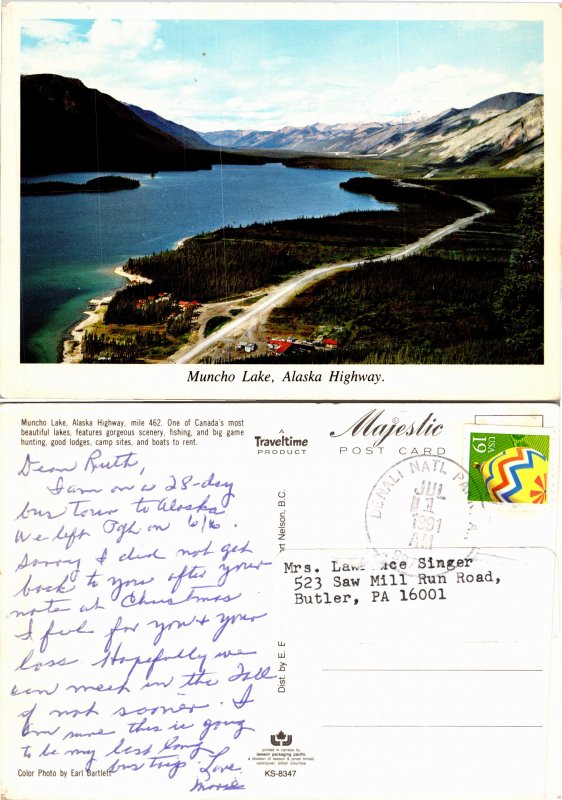 Muncho Lake, Alaska Highway.
Muncho Lake, Alaska Highway, mile 462. One of Canada's most
beautiful lakes, features gorgeous scenery, fishing, and big game
hunting, good lodges, camp sites, and boats to rent.
A
Traveltime
PRODUCT
Majestic
POST CARD
Dear Ruth,
I am on a 28-day
bus tour to Alaska.
We left Pgh on 6/6.
Sorry I did not get
back to you after your
note at Christmas
I feel for you & your
loss. Hopefully we
can meet in the Fall
if not sooner. I
am sure this is going
to be my last long
bus trip. Love
Color Photo by Earl Bartlett
Dist. by E. E
rt Nelson, B.C.
DENALI NATL PA
JUL
1991
AM
USA
19
Mrs. Law nce Singer
523 Saw Mill Run Road,
Butler, PA 16001
printed in canada by
lawson packaging pacific
a division of lawson & jones limited
vancouver, british columbia
KS-8347